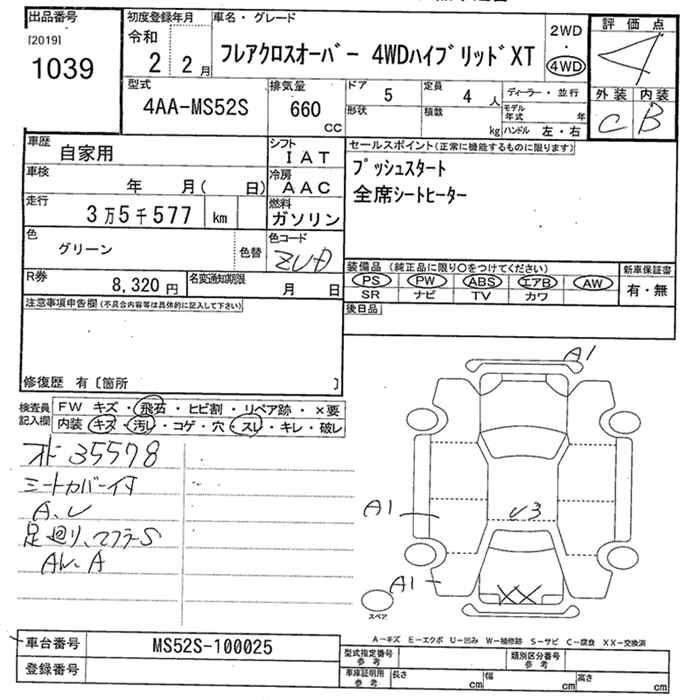 出品番号
[2019]
1039
初度登録年月
令和
2 2月
車名・グレード
フレアクロスオーバー 4WDハイブリッドXT
2WD
・
4WD
評価点
4
外装 内装
C B
型式
4AA-MS52S
排気量
660
CC
ドア 5
定員 4 人
形状
積数
kg
ディーラー・並行
モデル年式 年
ハンドル 左・右
車歴
自家用
シフト
IAT
車検
年 月( 日)
冷房
AAC
走行
3万5千577 km
燃料
ガソリン
色
グリーン
色替
色コード
R券
8,320円
名変通知期限
月 日
セールスポイント(正常に機能するものに限ります)
プッシュスタート
全席シートヒーター
装備品 (純正品に限り○をつけてください)
PS PW ABS エアB AW
SR ナビ TV カワ
新車保証書
有・無
後日品
注意事項申告欄(不具合内容等は具体的に記入して下さい)
修復歴 有〔箇所 〕
検査員記入欄
FW キズ・飛石・ヒビ割・リペア跡・×要
内装 キズ・汚し・コゲ・穴・スレ・キレ・破レ
オドー35578
シートカバー付
A、U
足廻り、マフラーS
A1
U3
A1
A1
XX
スペア
A−キズ E−エクボ U−凹み W−補修跡 S−サビ C−腐食 XX−交換済
車台番号
MS52S-100025
登録番号
型式指定番号
参考
類別区分番号
参考
車庫証明用
参考
長さ cm
幅 cm
高さ cm